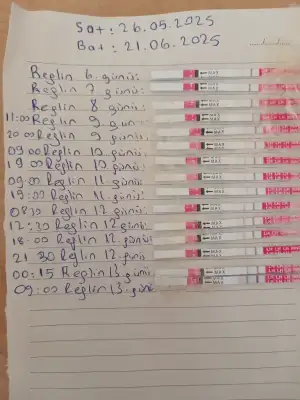 Sat: 26.05.2025
Bat: 21.06.2025
Reglin 6. günü:
Reglin 7 günü:
Reglin 8 günü:
11:00 Reglin 9 günü
20:00 Reglin 9 günü:
09:00 Reglin 10 günü:
19:00 Reglin 10 günü:
09:00 Reglin 11 günü:
19:00 Reglin 11 günü:
08:30 Reglin 12 günü:
12:30 Reglin 12 günü:
18:00 Reglin 12 günü:
21:30 Reglin 12 günü
00:15 Reglin 13 günü
09:00 Reglin 13 günü